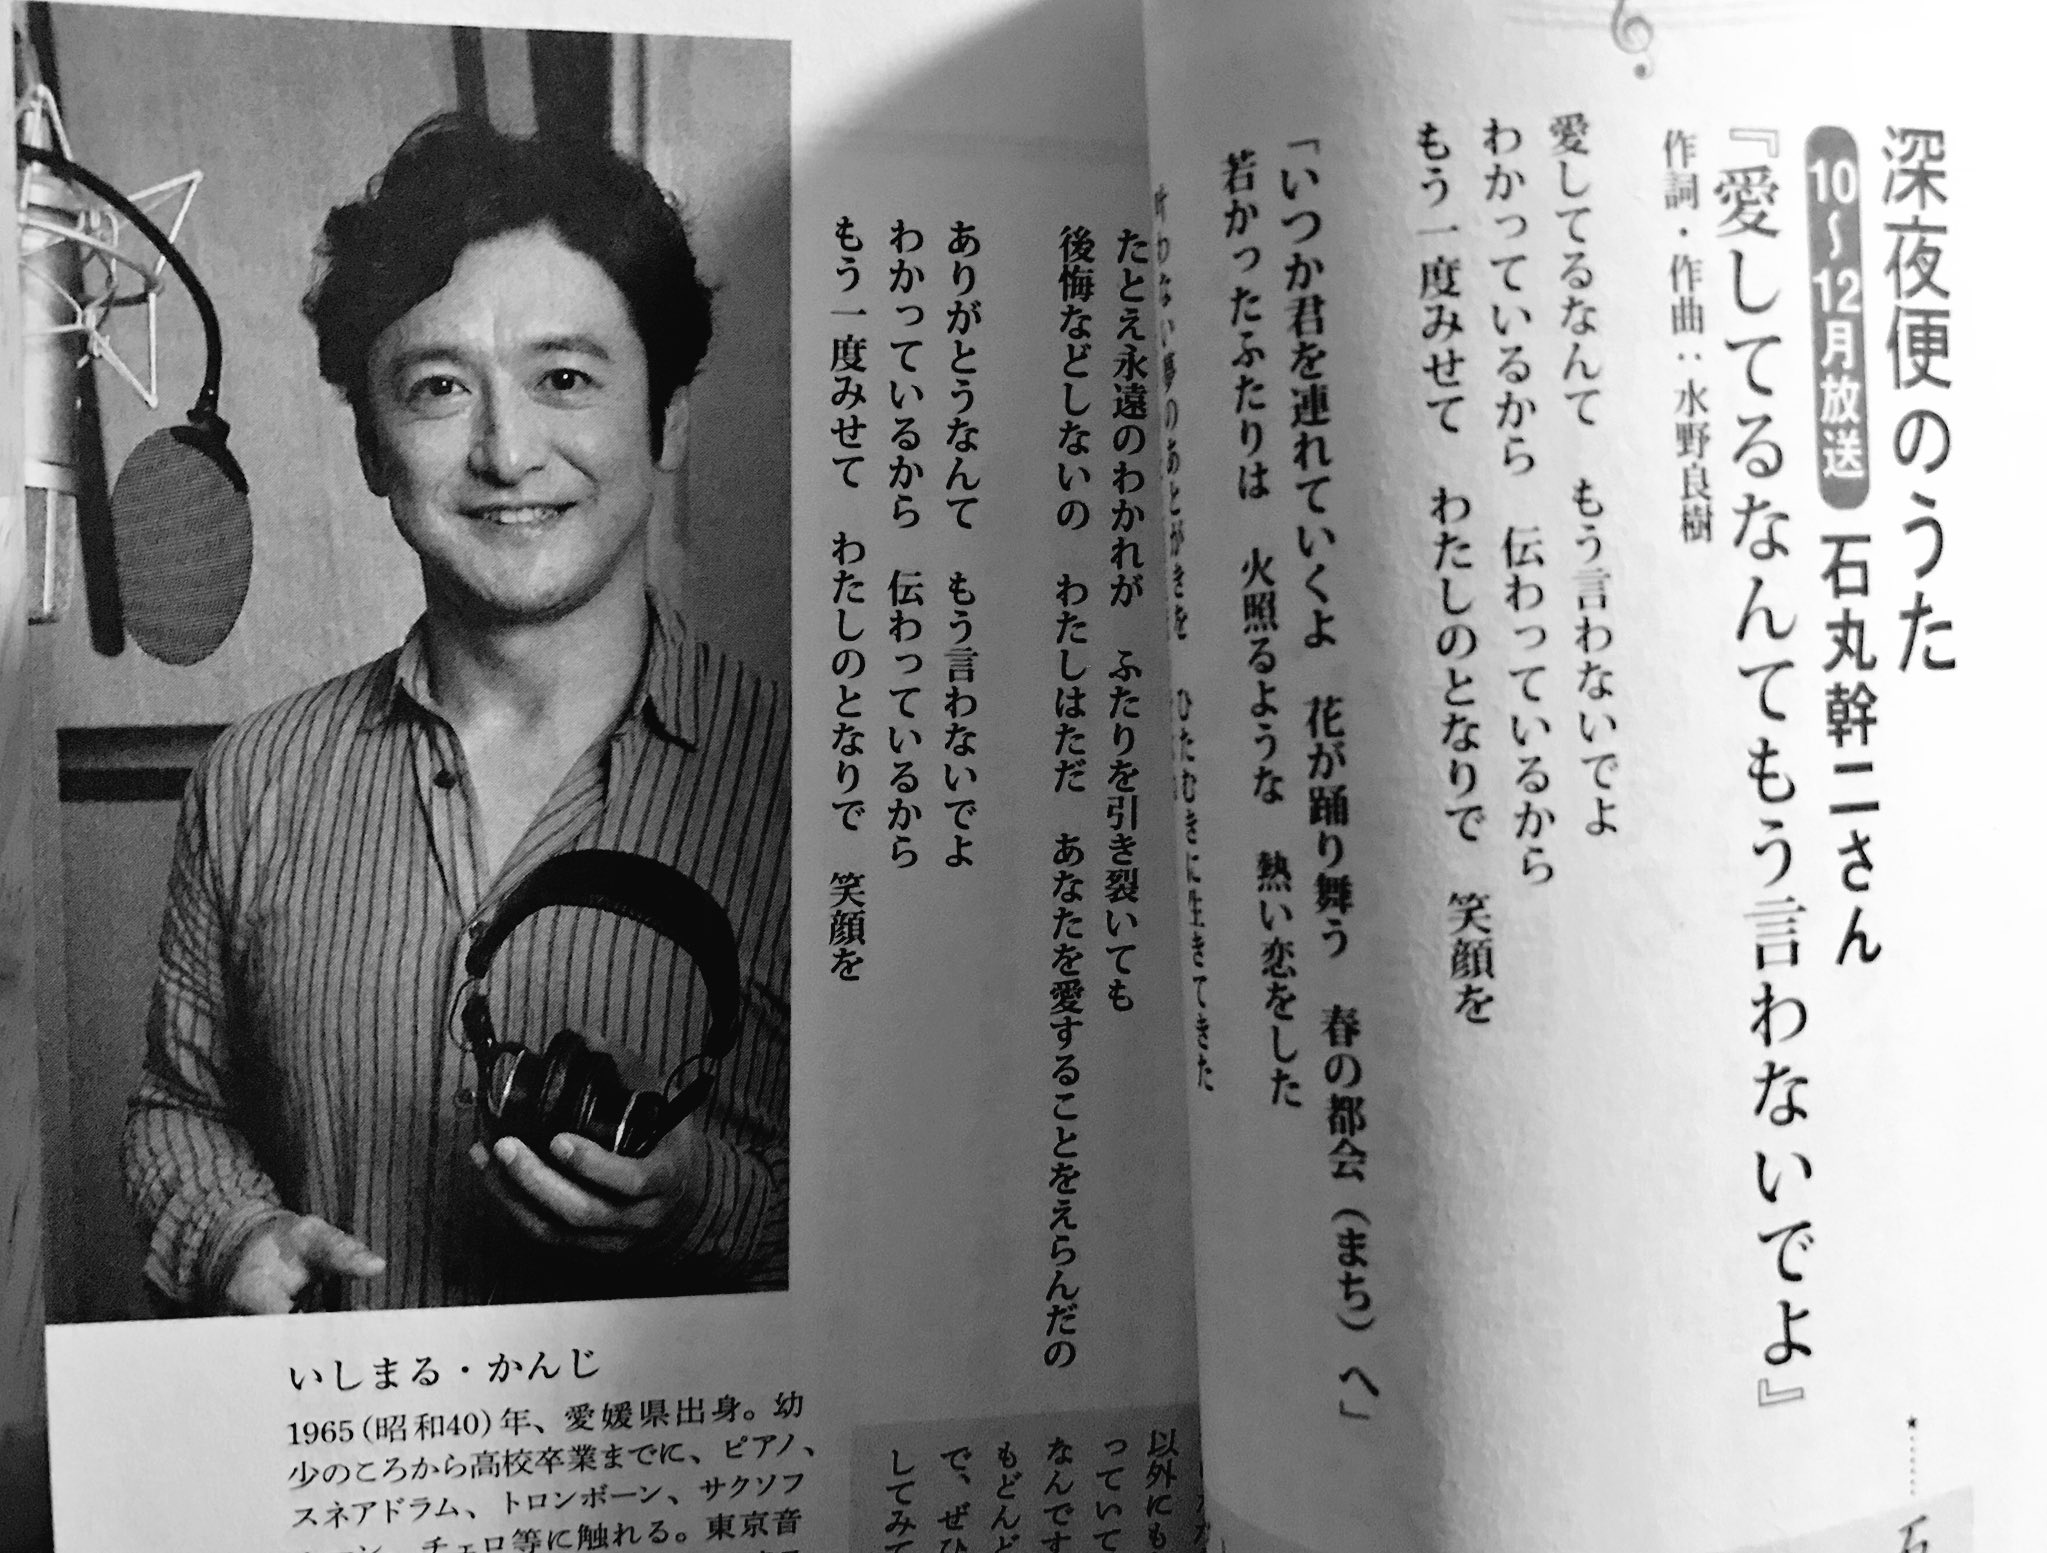 深夜便のうた
10〜12月放送 石丸幹二さん
『愛してるなんてもう言わないでよ』
作詞・作曲：水野良樹
愛してるなんて　もう言わないでよ
わかっているから　伝わっているから
もう一度みせて　わたしのとなりで　笑顔を
「いつか君を連れていくよ　花が踊り舞う　春の都会（まち）へ」
若かったふたりは　火照るような　熱い恋をした
夢のあとがきを　ひたむきに生きてきた
たとえ永遠のわかれが　ふたりを引き裂いても
後悔などしないの　わたしはただ　あなたを愛することをえらんだの
ありがとうなんて　もう言わないでよ
わかっているから　伝わっているから
もう一度みせて　わたしのとなりで　笑顔を
いしまる・かんじ
1965（昭和40）年、愛媛県出身。幼
少のころから高校卒業までに、ピアノ、
スネアドラム、トロンボーン、サクソフ
チェロ等に触れる。東京音
以外にも
っていて
なんです
もどんど
で、ぜひ
してみて